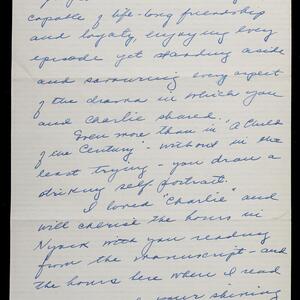 capable of life-long friendship
and loyalty, enjoying every
episode yet standing aside
and savouring every aspect
of the drama in which you
and Charlie shared.
Even more than in "A Child
of the Century" - without in the
least trying - you draw a
striking self portrait.
I loved "Charlie" and
will cherish the hours in
Nyack with you reading
from the manuscript - and
the hours here where I read
your shining